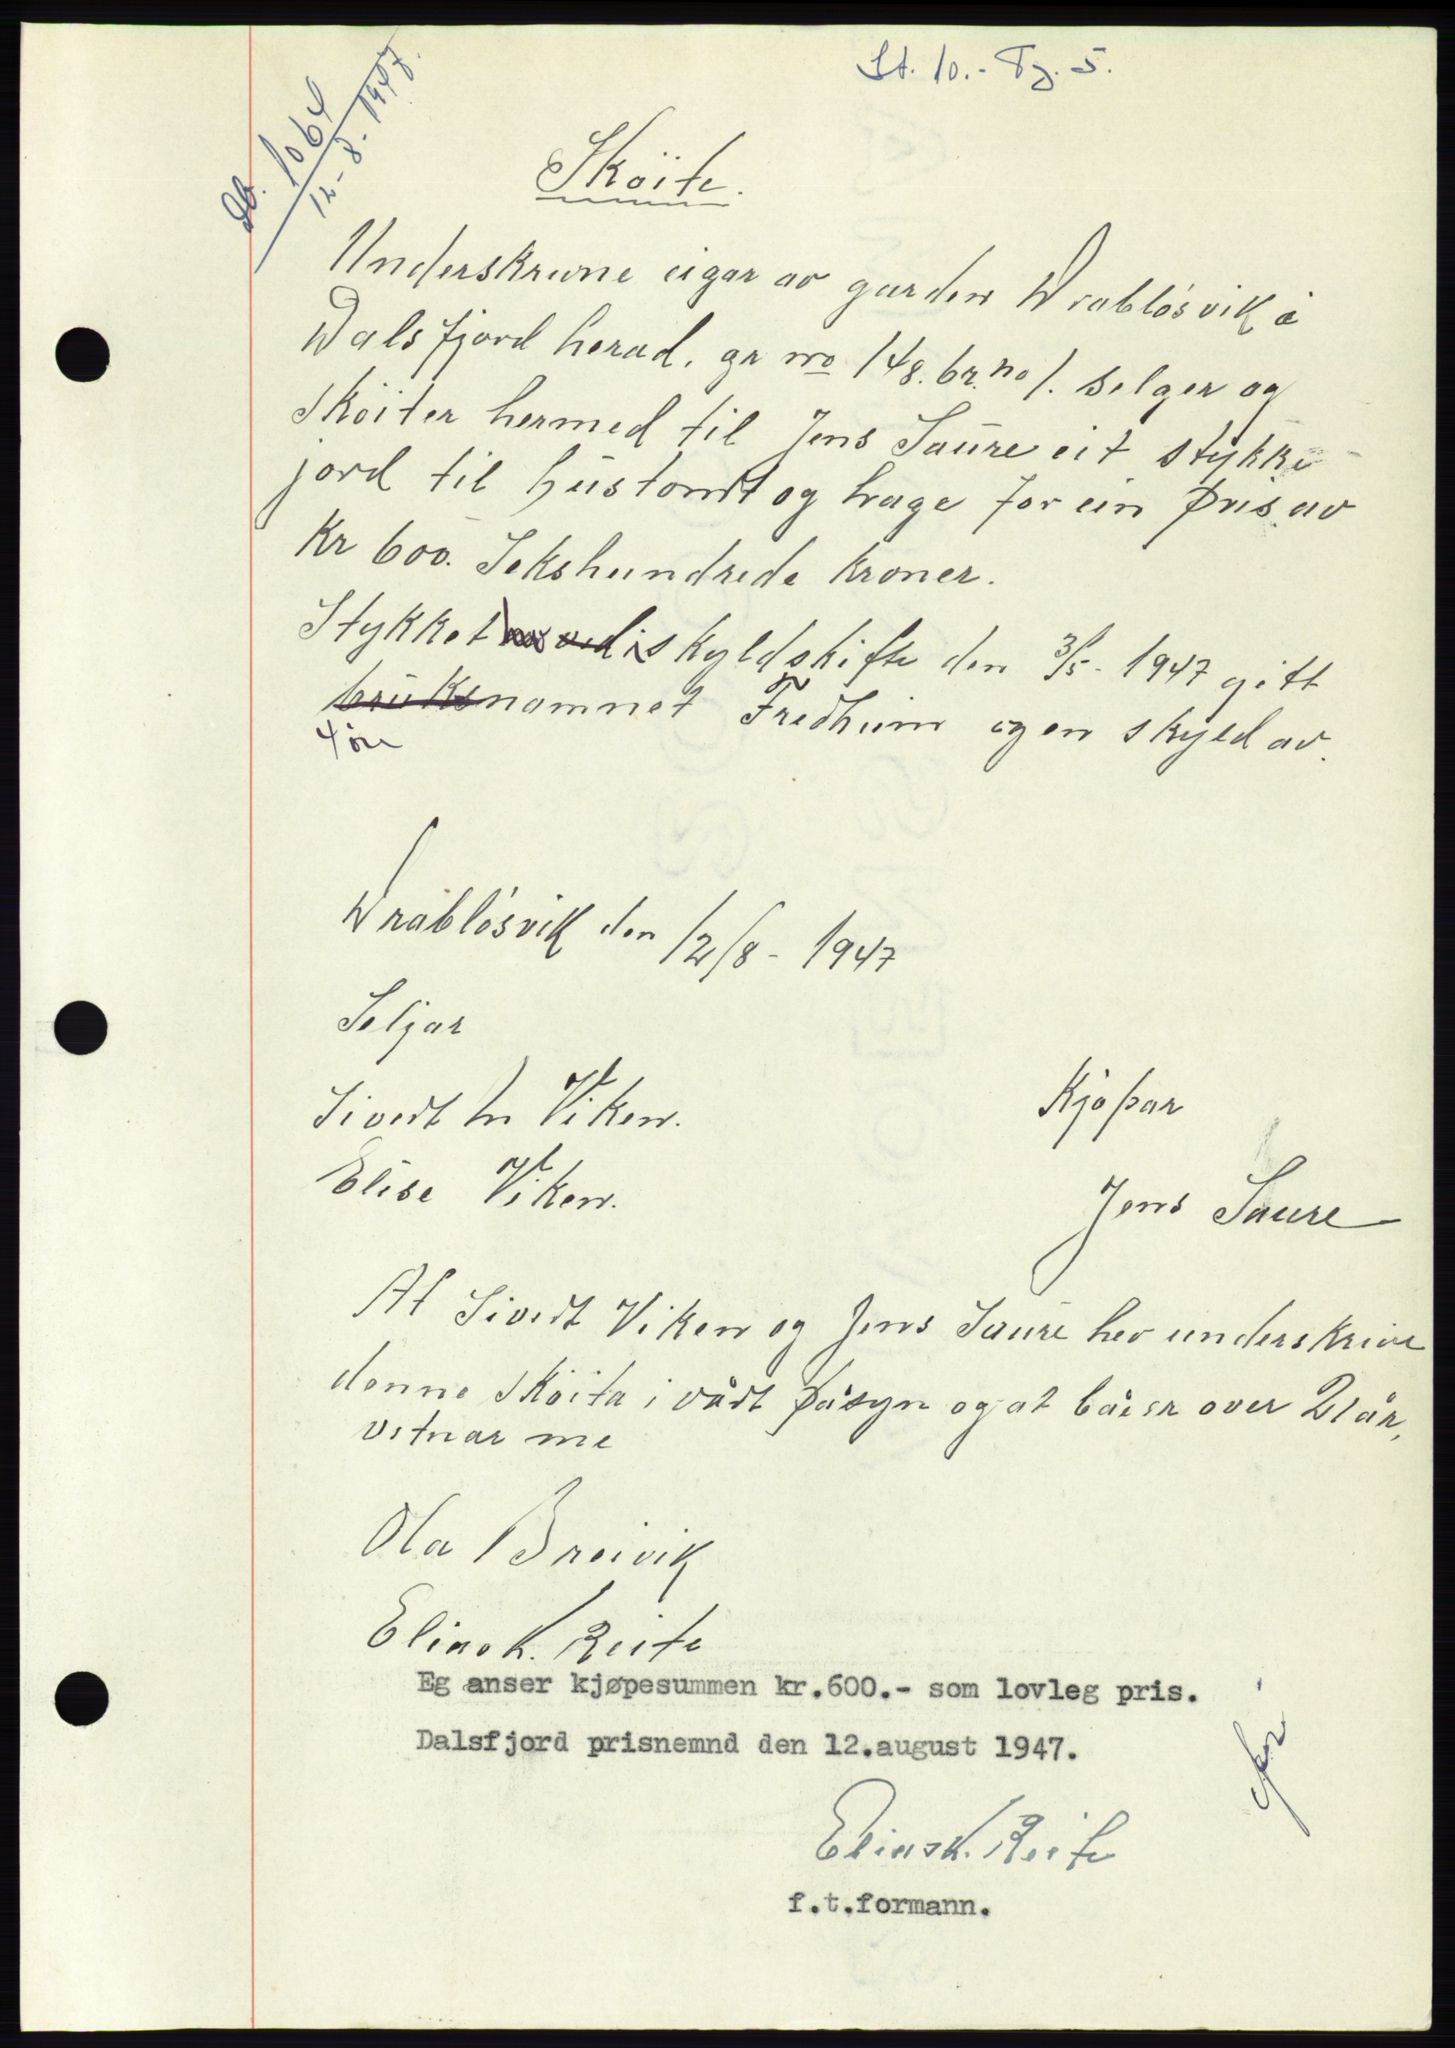 St. 10.- Tg. 5.
Db. 1064
12-8-1947.
Sköite.
Underskrivne eigar av garden Drabløsvik i
Dalsfjord herad. gr no 148. br. no 1. selger og
sköiter hermed til Jens Saure eit stykke
jord til hustomt og hage for ein pris av
Kr 600. Sekshundrede kroner.
Stykket ved skyldskifte den 31/5- 1947 gitt
bruksnamnet Fredheim og en skyld av.
4 öre
Drabløsvik den 12/8 - 1947
Seljar
Sivert M Viken.
Kjöpar
Elise Viken.
Jens Saure
At Sivert Viken og Jens Saure hev underskrive
denne sköita i vårt påsyn og at båe er over 21 år,
vitnar me
Ola Breivik
Elias K. Reite
Eg anser kjøpesummen kr.600.- som lovleg pris.
Dalsfjord prisnemnd den 12.august 1947.
Elias K. Reite
f.t.formann.